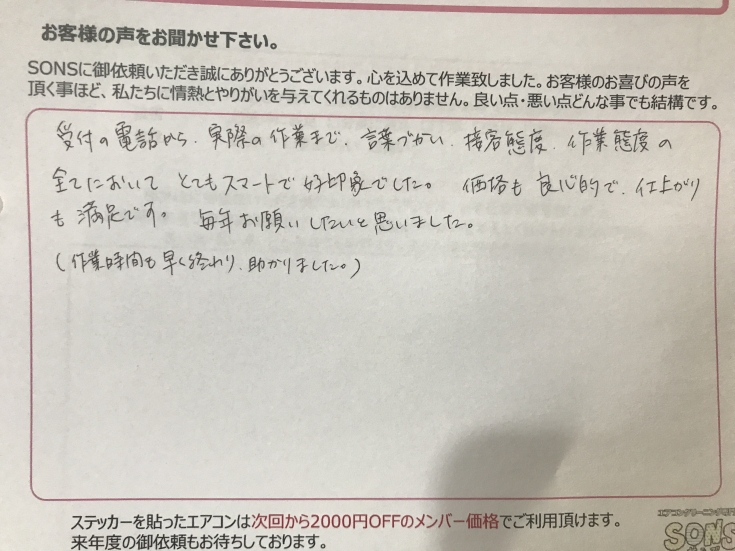 お客様の声をお聞かせ下さい。
SONSに御依頼いただき誠にありがとうございます。心を込めて作業致しました。お客様のお喜びの声を
頂く事ほど、私たちに情熱とやりがいを与えてくれるものはありません。良い点・悪い点どんな事でも結構です。
受付の電話から、実際の作業まで、言葉づかい、接客態度、作業態度の
全てにおいて とてもスマートで好印象でした。 価格も良心的で、仕上がり
も満足です。 毎年お願いしたいと思いました。
(作業時間も早く終わり、助かりました。)
ステッカーを貼ったエアコンは次回から2000円OFFのメンバー価格でご利用頂けます。
来年度の御依頼もお待ちしております。
エアコンクリーニング専門
SONS